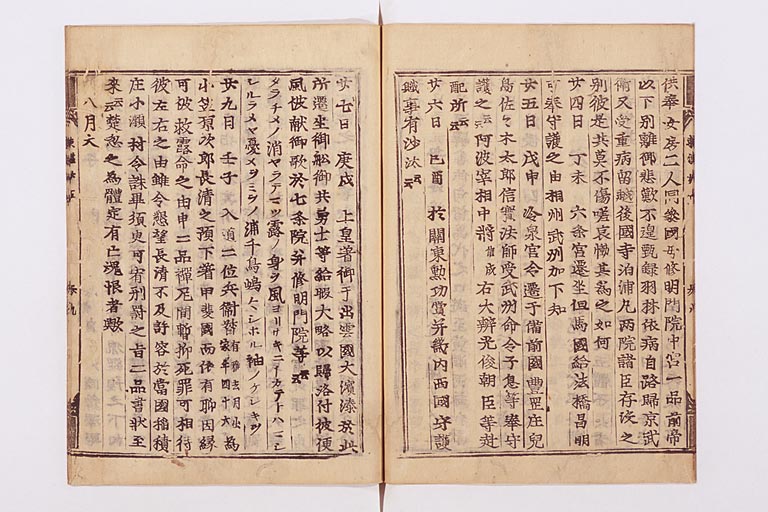 供奉女房二人同参國母修明門院中宮一品前帝
以下別離御悲歎不遑甄録羽林依病自路歸京武
衛又受重病留越後國寺泊浦凡両院諸臣存没之
別彼是共莫不傷嗟哀慟甚為之如何
廿四日 丁未 六条宮遷坐但馬國給法橋昌明
可奉守護之由相州武州加下知
廿五日 戊申 冷泉宮令遷于備前國豊岡庄兒
島佐々木太郎信實法師受武州命令子息等奉守
護之云々阿波宰相中将信成右大辨光俊朝臣等赴
配所云々
廿六日 己酉 於關東勲功賞并畿内西國守護
職事有沙汰云々
廿七日 庚戌 上皇著御于出雲國大濱湊於此
所遷坐御舩御共勇士等給暇大略以歸洛付彼便
風被献御歌於七条院并修明門院等云々
タラチメノ消ヤラテマツ露ノ身ヲ風ヨリサキニイカテトハマシ
シルラメヤ憂メヲミヲノ浦千鳥嶋々シホル袖ノケシキヲ
廿九日 壬子 入道二位兵衛督有雅去月出家年四十六為
小笠原次郎長清之預下著甲斐國而依有聊因縁
可被救露命之由申二品禪尼間暫抑死罪可相待
彼左右之由雖令懇望長清不及許容於當國稲積
庄小瀬村令誅畢須臾可宥刑罸之旨二品書状至
来云々楚忽之為體定有亡魂恨者歟
八月大